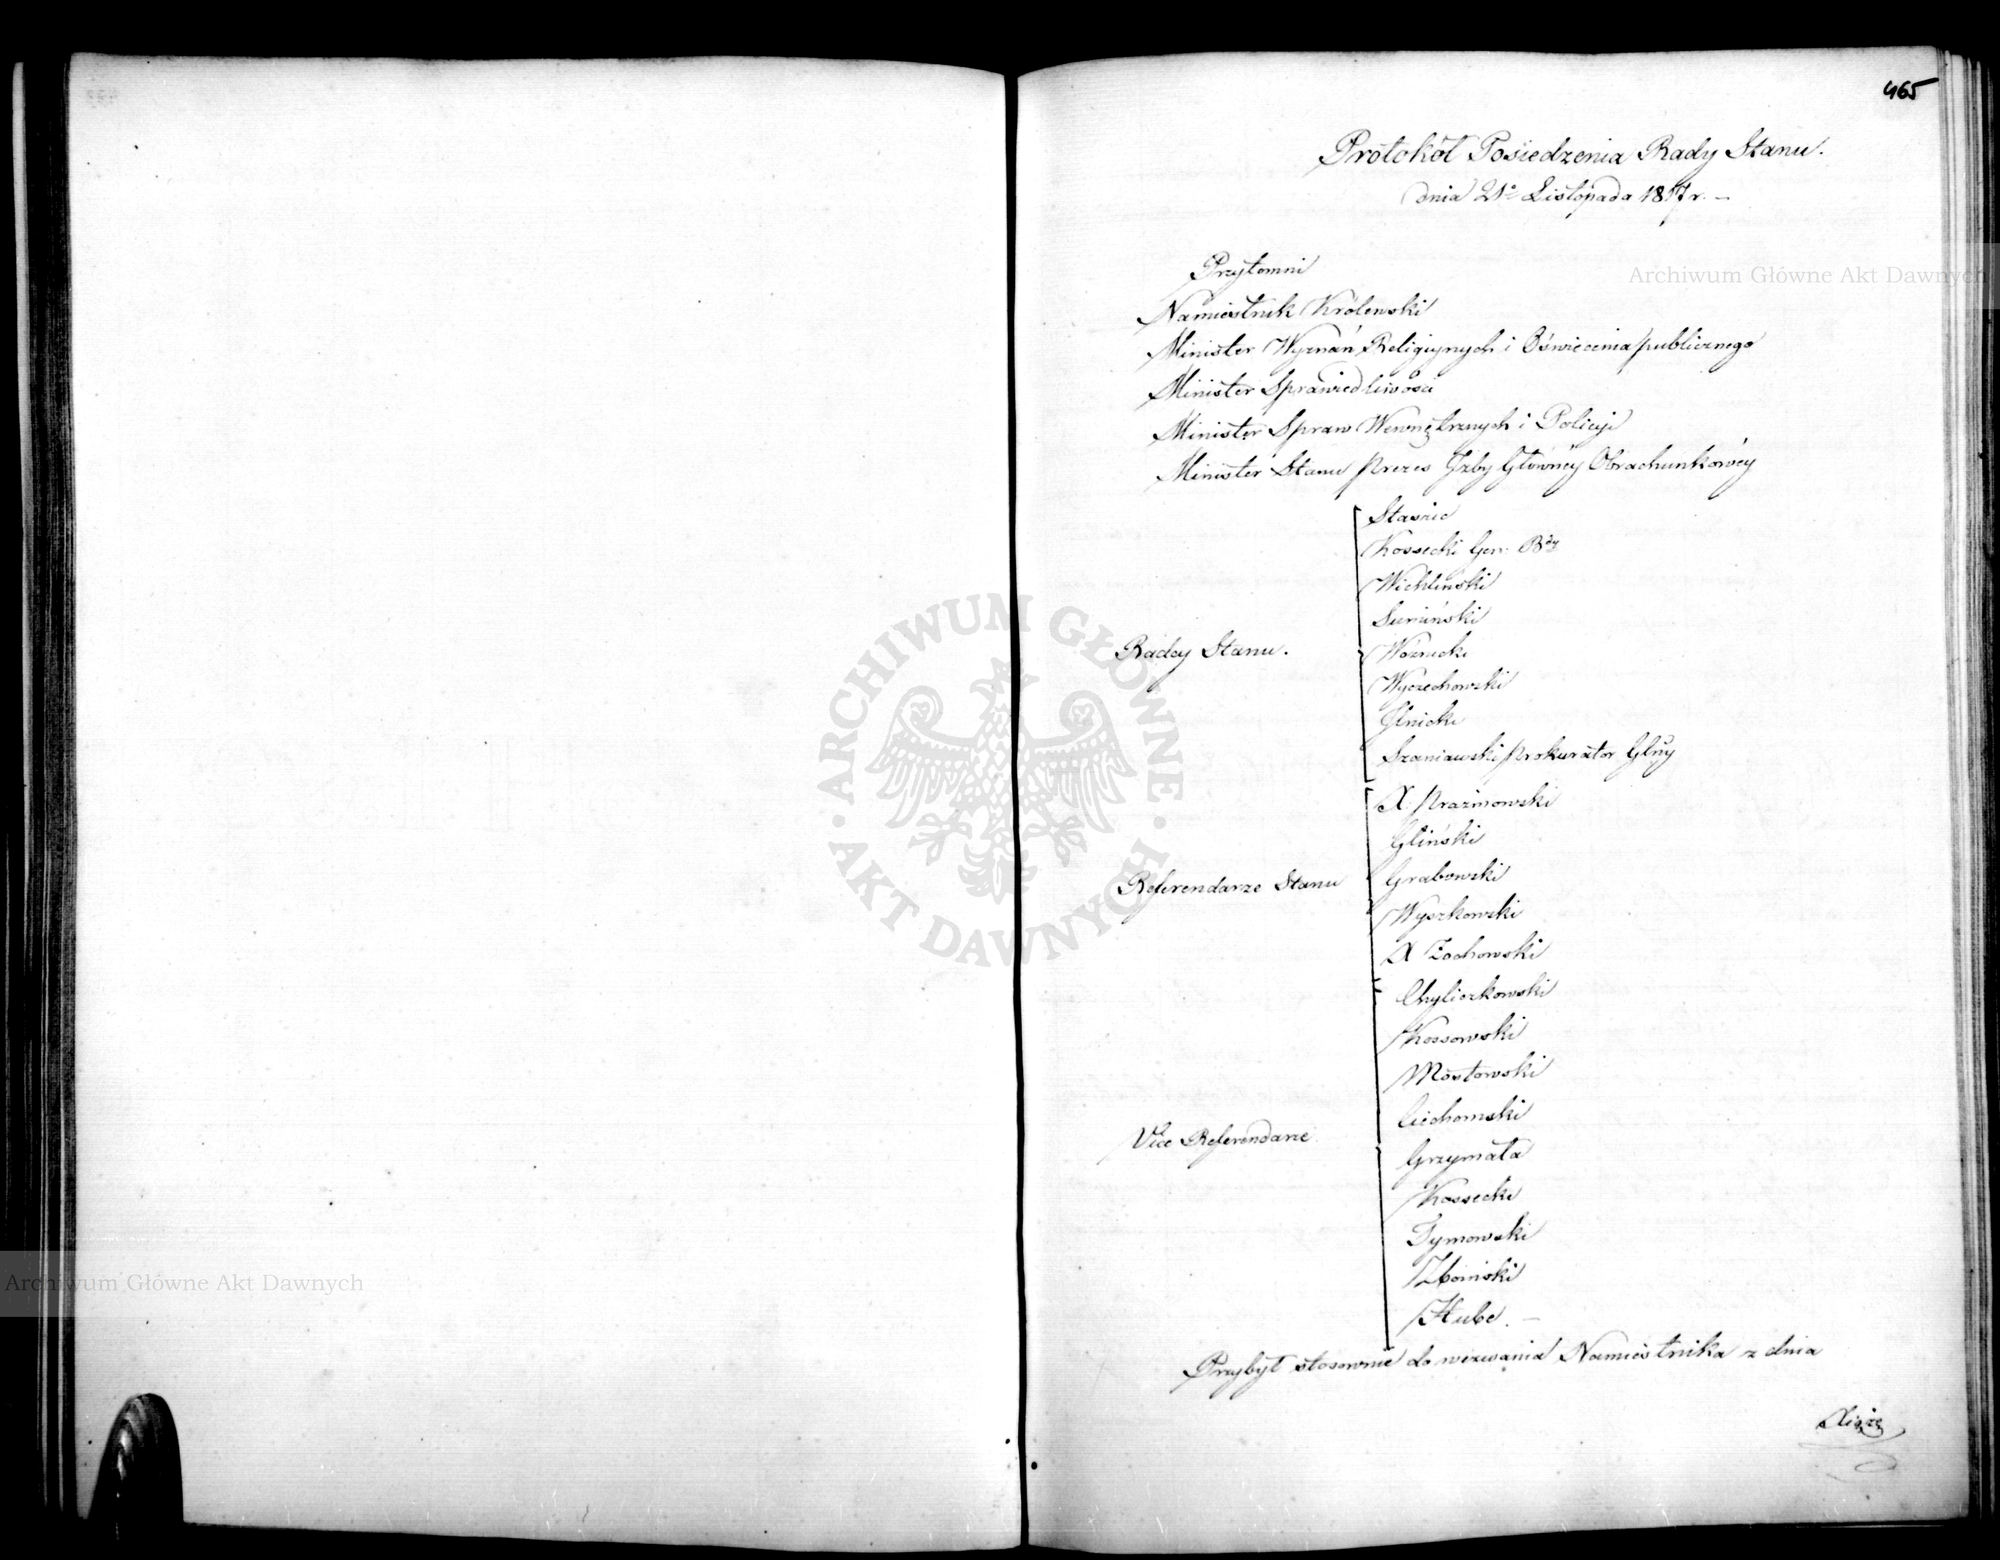 465
Protokół Posiedzenia Rady Stanu.
dnia 21° Listopada 1817 r. –
Przytomni
Namiestnik Królewski
Minister Wyznań Religiynych i Oświecenia publicznego
Minister Sprawiedliwości
Minister Spraw Wewnętrznych i Policyi
Minister Stanu Prezes Izby Główney Obrachunkowey
Radcy Stanu.
Staszic
Kossecki Gen: Bdy
Wichliński
Sumiński
Woźnicki
Wyczechowski
Glnicki
Szaniawski Prokurator Glny
Referendarze Stanu
X. Prażmowski
Gliński
Grabowski
Wyszkowski
X Żochowski
Vice Referendarze
Chyliczkowski
Kossowski
Mostowski
Ciechomski
Grzymała
Kossecki
Tymowski
Zboiński
Hube. –
Przybył stosownie do wezwania Namiestnika z dnia
Xiąże
Archiwum Główne Akt Dawnych
Archiwum Główne Akt Dawnych
ARCHIWUM GŁÓWNE · AKT DAWNYCH ·